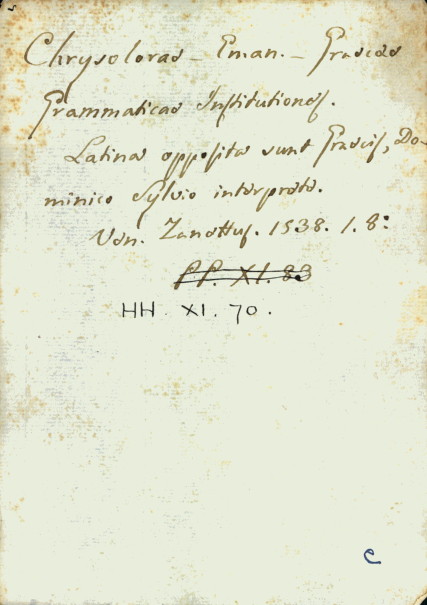 Chrysoloras - Eman. - Graecae
Grammaticae Institutiones.
Latina opposita sunt Graecis, Do-
minico Sylvio interprete.
Ven. Zanettus. 1538. 1. 8:
PP. XI. 83
HH. XI. 70.
e